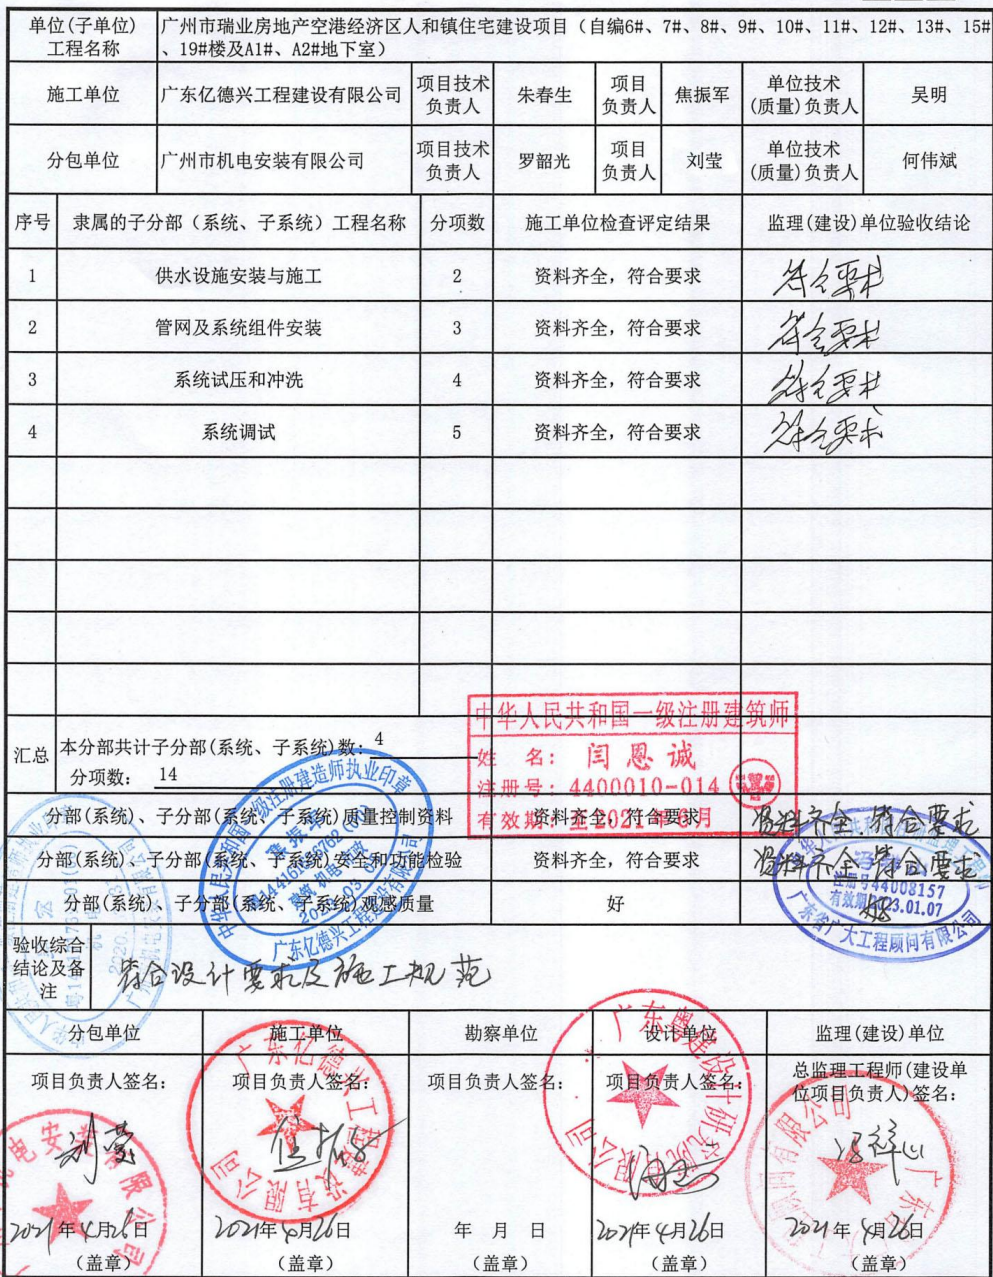 单位(子单位)
工程名称
广州市瑞业房地产空港经济区人和镇住宅建设项目（自编6#、7#、8#、9#、10#、11#、12#、13#、15#
、19#楼及A1#、A2#地下室）
施工单位 广东亿德兴工程建设有限公司 项目技术负责人 朱春生 项目负责人 焦振军 单位技术(质量)负责人 吴明
分包单位 广州市机电安装有限公司 项目技术负责人 罗韶光 项目负责人 刘莹 单位技术(质量)负责人 何伟斌
序号 隶属的子分部（系统、子系统）工程名称 分项数 施工单位检查评定结果 监理(建设)单位验收结论
1 供水设施安装与施工 2 资料齐全，符合要求 符合要求
2 管网及系统组件安装 3 资料齐全，符合要求 符合要求
3 系统试压和冲洗 4 资料齐全，符合要求 符合要求
4 系统调试 5 资料齐全，符合要求 符合要求
汇总 本分部共计子分部(系统、子系统)数: 4
分项数: 14
中华人民共和国一级注册建筑师
姓 名: 闫恩诚
注册号: 4400010-014
有效期: 至2021年6月
分部(系统)、子分部(系统、子系统)质量控制资料 资料齐全，符合要求 资料齐全 符合要求
分部(系统)、子分部(系统、子系统)安全和功能检验 资料齐全，符合要求 资料齐全 符合要求
分部(系统)、子分部(系统、子系统)观感质量 好 好
注册号44008157
有效期2023.01.07
广东省广大工程顾问有限公司
验收综合结论及备注 符合设计要求及施工规范
分包单位 施工单位 勘察单位 设计单位 监理(建设)单位
项目负责人签名: 项目负责人签名: 项目负责人签名: 项目负责人签名: 总监理工程师(建设单位项目负责人)签名:
刘莹 焦振军
2021年4月26日 2021年4月26日 年 月 日 2021年4月26日 2021年4月26日
(盖章) (盖章) (盖章) (盖章) (盖章)